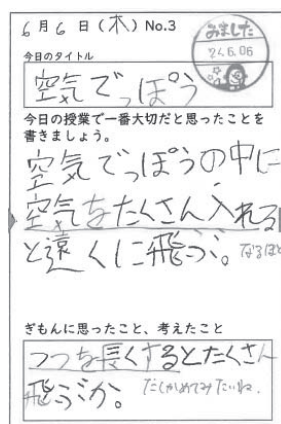 6月6日(木) No.3
みました
24.6.06
今日のタイトル
空気でっぽう
今日の授業で一番大切だと思ったことを
書きましょう。
空気でっぽうの中に
空気をたくさん入れる
と遠くに飛ぶ。なるほど
ぎもんに思ったこと、考えたこと
つつを長くするとたくさん
飛ぶか。たしかめてみたいね。